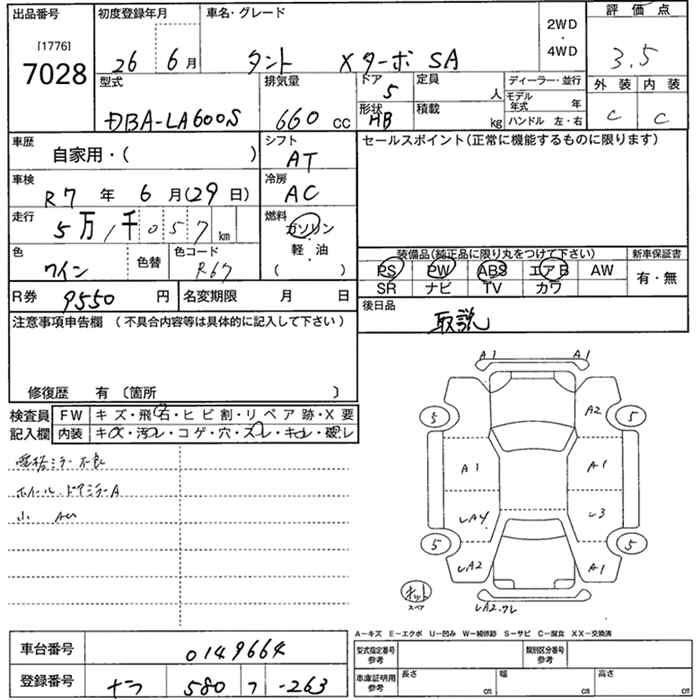 出品番号 初度登録年月 車名・グレード 2WD・4WD 評価点
[1776]
7028 26 6月 タント XターボSA 3.5
型式 排気量 ドア 5 定員 人 ディーラー・並行 外装 内装
DBA-LA600S 660cc 形状 HB 積載 kg モデル年式 年 C C
ハンドル 左・右
車歴 自家用・( ) シフト AT セールスポイント(正常に機能するものに限ります)
車検 R7年 6月(29日) 冷房 AC
走行 5万1千057km 燃料 ガソリン・軽・油( )
色 ワイン 色替 色コード R67
装備品(純正品に限り丸をつけて下さい) 新車保証書
PS PW ABS エアB AW 有・無
SR ナビ TV カワ
R券 9550円 名変期限 月 日 後日品 取説
注意事項申告欄 (不具合内容等は具体的に記入して下さい)
修復歴 有 〔箇所 〕
検査員記入欄 FW キズ・飛石・ヒビ割・リペア跡・X要
内装 キズ・汚レ・コゲ・穴・スレ・キレ・破レ
格ミラー不良
ホイール.ドアミラーA
小
A1 A1
5 A2 5
A1 A1
LA4 L3
5 LA2 A1 5
スペア
A-キズ E-エクボ U-凹み W-補修跡 S-サビ C-腐食 XX-交換済
車台番号 0149664 型式指定番号 参考 類別区分番号 参考
登録番号 580 -263 車庫証明用 参考 長さ cm 幅 cm 高さ cm